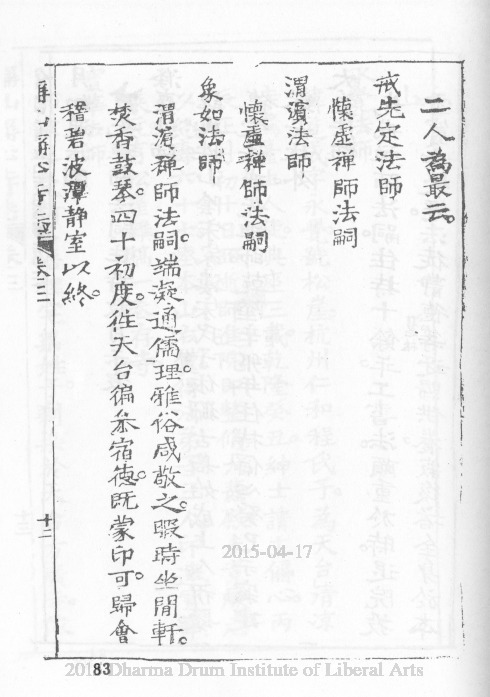 二人為最云。
戒先定法師
懷虛禪師法嗣
渭濱法師
懷虛禪師法嗣
象如法師
渭濱禪師法嗣端凝通儒理雅俗咸敬之。暇時坐閒軒。
焚香鼓琴。四十初度。徃天台徧叅宿德。既蒙印可。歸會
稽碧波潭靜室以終。
卷三
十二
2015-04-17
83
Dharma Drum Institute of Liberal Arts